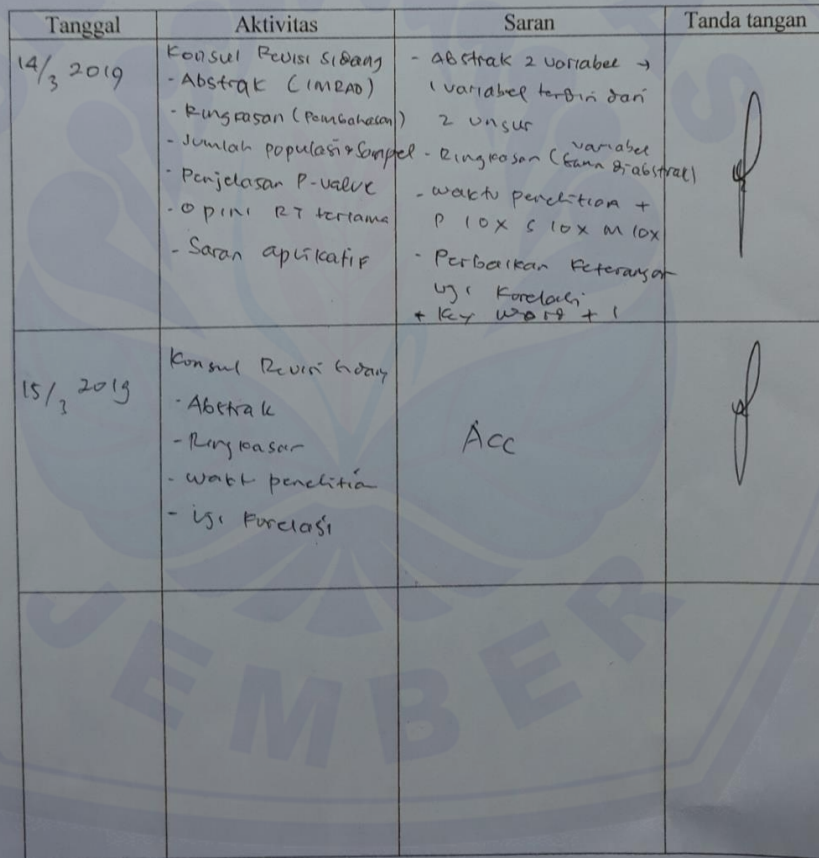 Tanggal Aktivitas Saran Tanda tangan
14/3 2019
Konsul Revisi Sidang
- Abstrak (IMRAD)
- Ringkasan (Pembahasan)
- Jumlah populasi & Sampel
- Penjelasan P-value
- Opini RT terlama
- Saran aplikatif
- Abstrak 2 variabel →
1 variabel terdiri dari
2 unsur
- Ringkasan (variabel
sama di abstrak)
- waktu penelitian +
P 10x S 10x M 10x
- Perbaikan keterangan
uji korelasi
+ Key word + 1
15/3 2019
Konsul Revisi Sidang
- Abstrak
- Ringkasan
- waktu penelitian
- uji korelasi
Acc
JEMBER